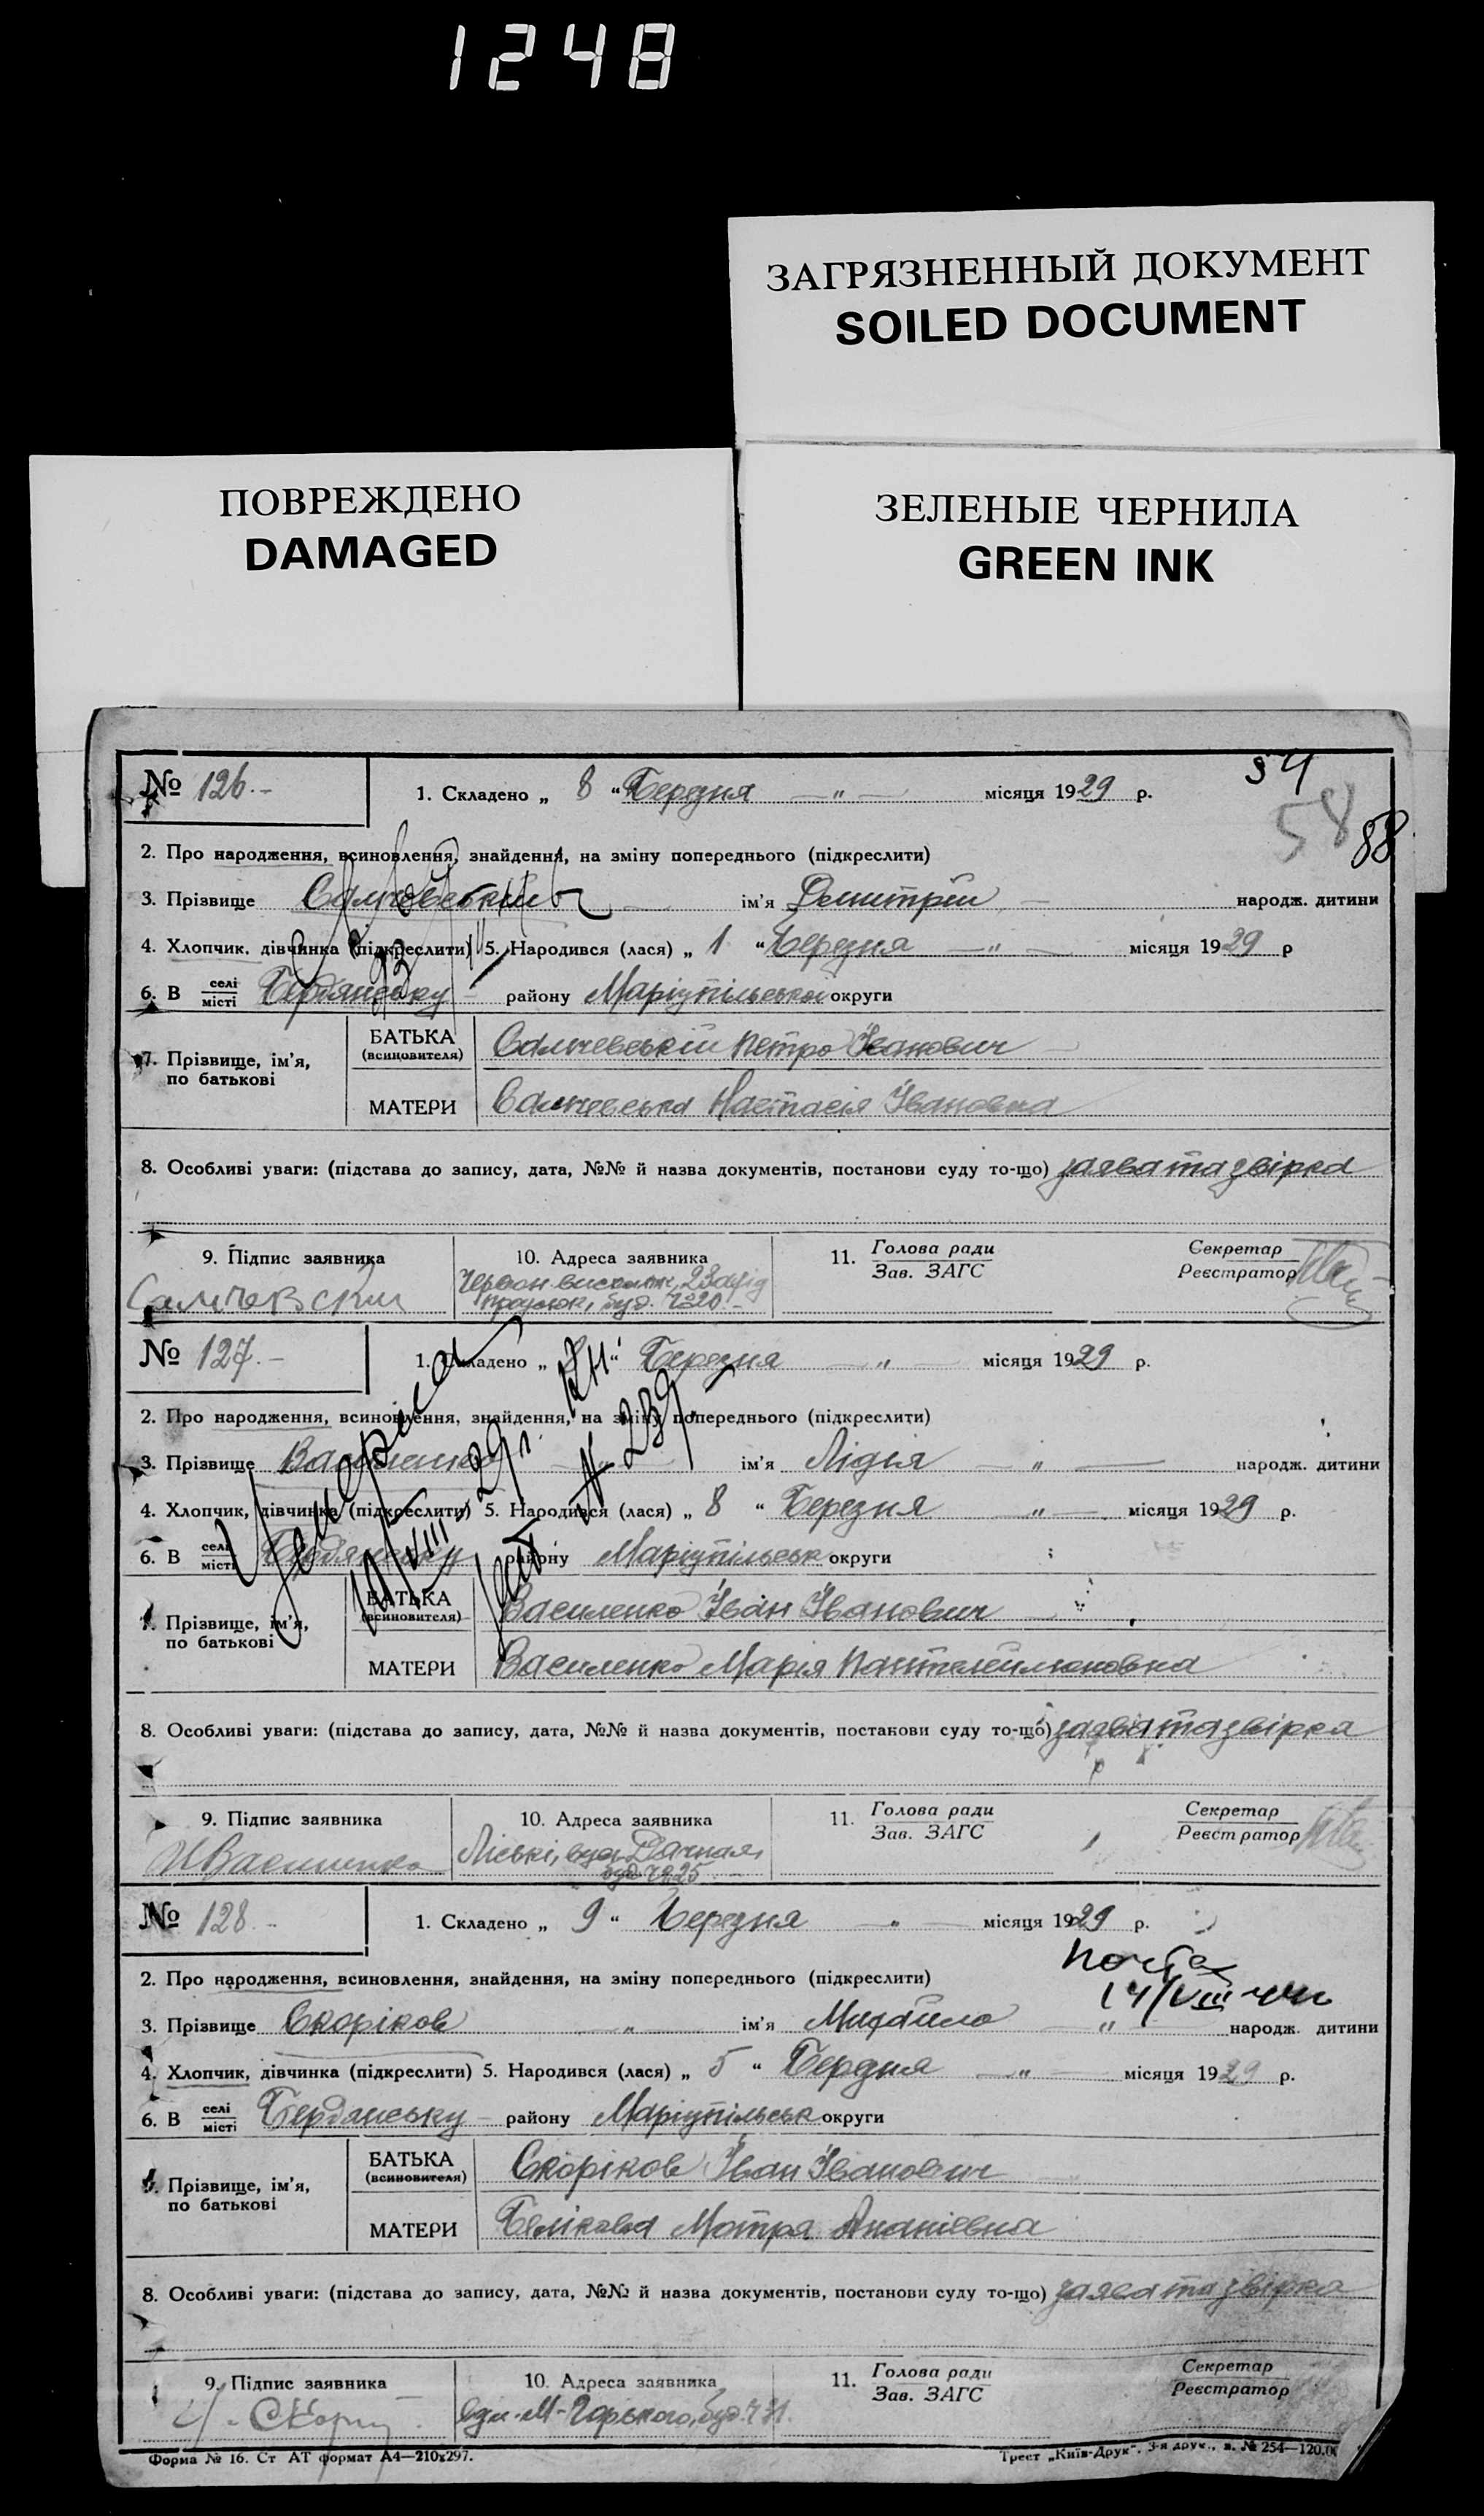 1248
ЗАГРЯЗНЕННЫЙ ДОКУМЕНТ
SOILED DOCUMENT
ПОВРЕЖДЕНО
DAMAGED
ЗЕЛЕНЫЕ ЧЕРНИЛА
GREEN INK
54
58
88
№ 126.-
1. Складено „ 8 “ Березня —"— місяця 1929 р.
2. Про народження, всиновлення, знайдення, на зміну попереднього (підкреслити)
3. Прізвище ім'я Дмитрій народж. дитини
4. Хлопчик, дівчинка (підкреслити) 5. Народився (лася) „ 1 “ Березня —"— місяця 1929 р
6. В селі/місті Бердянську району Маріупільської округи
7. Прізвище, ім'я, по батькові
БАТЬКА (всиновителя) Салчевській Петро Іванович
МАТЕРИ Салчевська Настасія Івановна
8. Особливі уваги: (підстава до запису, дата, №№ й назва документів, постанови суду то-що) заява та звірка
9. Підпис заявника
10. Адреса заявника
11. Голова ради / Зав. ЗАГС
Секретар / Реєстратор
Салчевский
№ 127.-
1. Складено „ “ Березня —"— місяця 1929 р.
2. Про народження, всиновлення, знайдення, на зміну попереднього (підкреслити)
3. Прізвище Василенко ім'я Лідія —"— народж. дитини
4. Хлопчик, дівчинка (підкреслити) 5. Народився (лася) „ 8 “ Березня —"— місяця 1929 р.
6. В селі/місті Бердянську району Маріупільськ округи
Умерла
10/VIII-29 г.
акт № 239
7. Прізвище, ім'я, по батькові
БАТЬКА (всиновителя) Василенко Іван Іванович
МАТЕРИ Василенко Марія Пантелеймоновна
8. Особливі уваги: (підстава до запису, дата, №№ й назва документів, постанови суду то-що) заява та звірка
9. Підпис заявника
10. Адреса заявника
11. Голова ради / Зав. ЗАГС
Секретар / Реєстратор
И Василенко
Ліські, вул. Дачная,
буд. Ч 25
№ 128.-
1. Складено „ 9 “ Березня —"— місяця 1929 р.
2. Про народження, всиновлення, знайдення, на зміну попереднього (підкреслити)
14/VIII
3. Прізвище Скоріков —"— ім'я Михайло —"— народж. дитини
4. Хлопчик, дівчинка (підкреслити) 5. Народився (лася) „ 5 “ —"— місяця 1929 р.
6. В селі/місті Бердянську району Маріупільськ округи
7. Прізвище, ім'я, по батькові
БАТЬКА (всиновителя) Скоріков Іван Іванович
МАТЕРИ Белікова Мотря Ананіевна
8. Особливі уваги: (підстава до запису, дата, №№ й назва документів, постанови суду то-що) заява та звірка
9. Підпис заявника
10. Адреса заявника
11. Голова ради / Зав. ЗАГС
Секретар / Реєстратор
М-Горького, буд. Ч 31.
Форма № 16. Ст АТ формат А4—210x297.
Трест „Київ-Друк“. 3-я друк., з. № 254—120.